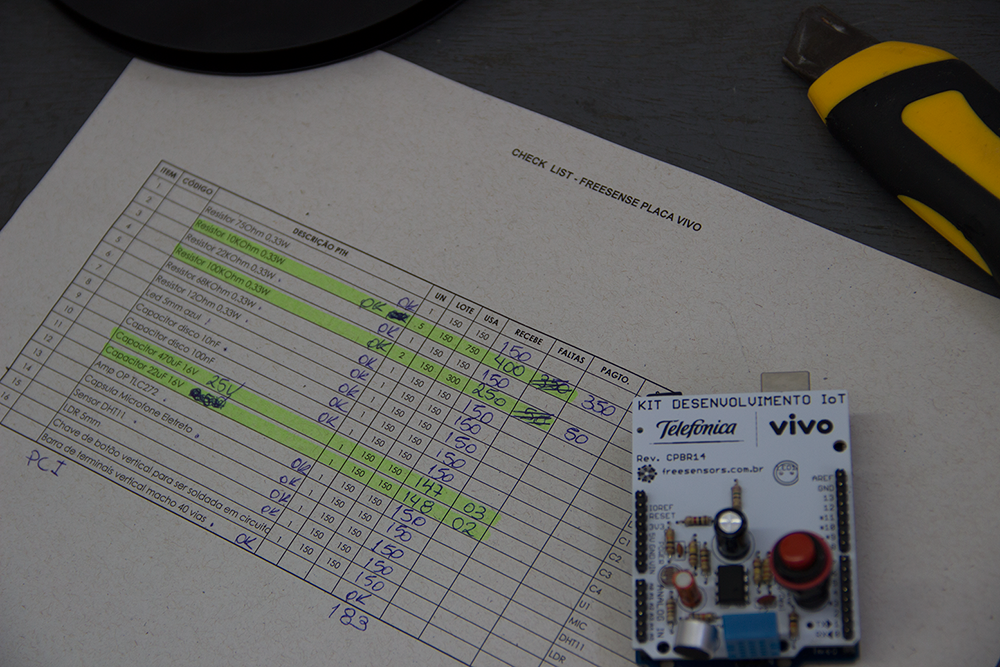 CHECK LIST - FREESENSE PLACA VIVO
ITEM CÓDIGO DESCRIÇÃO PTH UN LOTE USA RECEBE FALTAS PAGTO.
1 Resistor 75Ohm 0,33W OK 1 150 150 150
2 Resistor 10KOhm 0,33W OK 5 150 750 400 350
3 Resistor 22KOhm 0,33W OK 1 150 150 150
4 Resistor 100KOhm 0,33W OK 2 150 300 250 50
5 Resistor 68KOhm 0,33W OK 1 150 150 150
6 Resistor 12Ohm 0,33W OK 1 150 150 150
7 Led 3mm azul OK 1 150 150 150
8 Capacitor disco 10nF OK 1 150 150 150
9 Capacitor disco 100nF OK 1 150 150 150
10 Capacitor 470uF 16V 25V 1 150 150 147 03
11 Capacitor 22uF 16V 1 150 150 148 02
12 Amp OP TLC272 OK 1 150 150 150
13 Capsula Microfone Eletreto OK 1 150 150 150
14 Sensor DHT11 OK 1 150 150 150
15 LDR 5mm OK 1 150 150 150
16 Chave de botão vertical para ser soldada em circuito OK 1 150 150 150
Barra de terminais vertical macho 40 vias OK 1 150 150 OK
PCI 183
C3
C4
U1
MIC
DHT11
LDR
KIT DESENVOLVIMENTO IoT
Telefónica vivo
Rev. CPBR14
freesensors.com.br
AREF
GND
13
12
IOREF
RESET
3V3
ANALOG IN